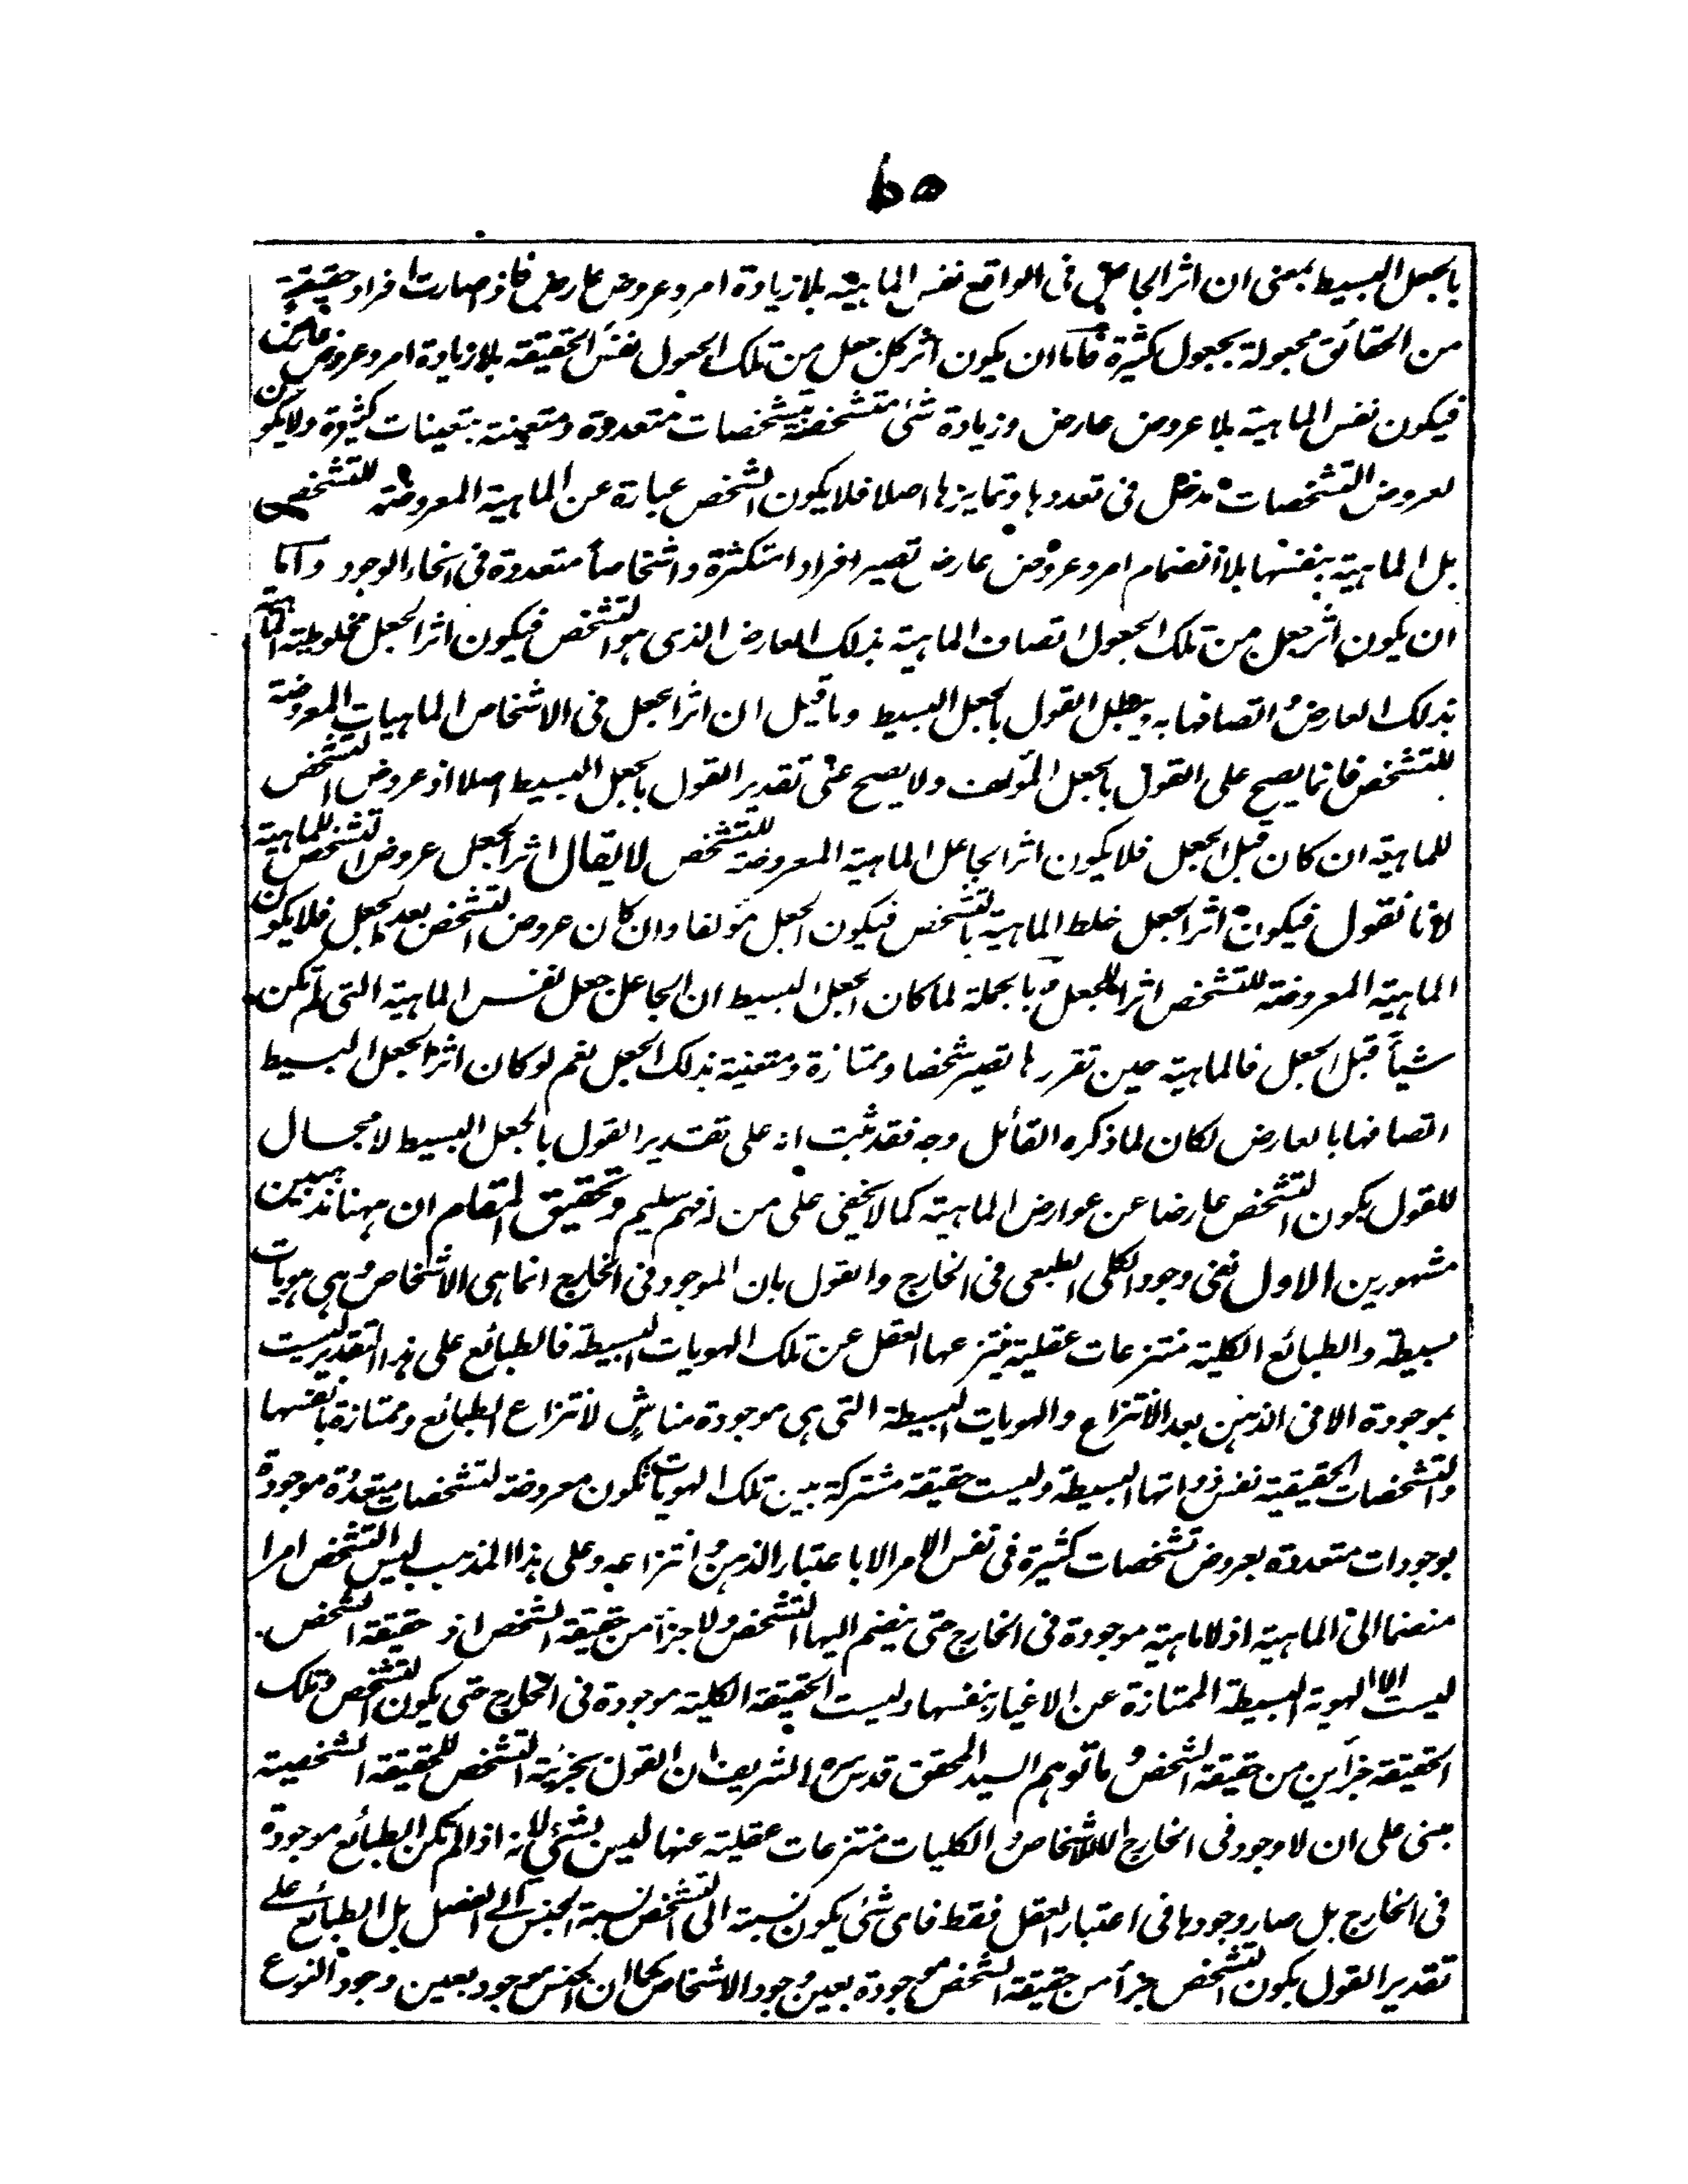 ٥٥
بالجعل البسيط بمعنى ان اثر الجاعل فى الواقع نفس الماهية بلا زيادة امر وعروض عارض فاذ صارت افراد حقيقة
من الحقائق مجعولة بجعول كثيرة فاما ان يكون اثر كل جعل من تلك الجعول نفس الحقيقة بلا زيادة امر وعروض عارض
فيكون نفس الماهية بلا عروض عارض وزيادة شئ متشخصة بتشخصات متعددة ومتعينة بتعينات كثيرة ولا يكون
لعروض التشخصات مدخل فى تعددها وتمايزها اصلا فلا يكون الشخص عبارة عن الماهية المعروضة للتشخص
بل الماهية بنفسها بلا انضمام امر وعروض عارض تصير افرادا متكثرة واشخاصاً متعددة فى انحاء الوجود واما
ان يكون اثر جعل من تلك الجعول اتصاف الماهية بذلك العارض الذى هو التشخص فيكون اثر الجعل مخلوطية الماهية
بذلك العارض واتصافها به ويبطل القول بالجعل البسيط وما قيل ان اثر الجعل فى الاشخاص الماهيات المعروضة
للتشخص فانما يصح على القول بالجعل المؤلف ولا يصح على تقدير القول بالجعل البسيط اصلا اذ عروض التشخص
للماهية ان كان قبل الجعل فلا يكون اثر الجاعل الماهية المعروضة للتشخص لا يقال اثر الجعل عروض التشخص للماهية
لانا نقول فيكون اثر الجعل خلط الماهية بالتشخص فيكون الجعل مؤلفا وان كان عروض التشخص بعد الجعل فلا يكون
الماهية المعروضة للتشخص اثرا للجعل وبالجملة لما كان الجعل البسيط ان الجاعل جعل نفس الماهية التى لم تكن
شيأ قبل الجعل فالماهية حين تقررها تصير شخصا وممتازة ومتعينة بذلك الجعل نعم لو كان اثر الجعل البسيط
اتصافها بالعارض لكان لما ذكره القائل وجه فقد ثبت انه على تقدير القول بالجعل البسيط لا مجال
للقول بكون التشخص عارضا عن عوارض الماهية كما لا يخفى على من له فهم سليم وتحقيق المقام ان ههنا مذهبين
مشهورين الاول نفى وجود الكلى الطبعى فى الخارج والقول بان الموجود فى الخارج انما هى الاشخاص وهى هويات
بسيطة والطبائع الكلية منتزعات عقلية فينتزعها العقل عن تلك الهويات البسيطة فالطبائع على هذا التقدير ليست
بموجودة الا فى الذهن بعد الانتزاع والهويات البسيطة التى هى موجودة مناشٍ لانتزاع الطبائع وممتازة بانفسها
والتشخصات الحقيقية نفس ذواتها البسيطة وليست حقيقة مشتركة بين تلك الهويات تكون معروضة لتشخصات متعددة موجودة
بوجودات متعددة بعروض تشخصات كثيرة فى نفس الامر الا باعتبار الذهن وانتزاعه وعلى هذا المذهب ليس التشخص امرا
منضما الى الماهية اذ لا ماهية موجودة فى الخارج حتى ينضم اليها التشخص ولا جزأ من حقيقة الشخص اذ حقيقة الشخص
ليست الا الهوية البسيطة الممتازة عن الاغيار بنفسها وليست الحقيقة الكلية موجودة فى الخارج حتى يكون التشخص وتلك
الحقيقة جزأين من حقيقة الشخص وما توهم السيد المحقق قدس سره الشريف ان القول بجزئية التشخص للحقيقة الشخصية
مبنى على ان لا وجود فى الخارج الا للاشخاص والكليات منتزعات عقلية عنها ليس بشئ لانه اذا لم تكن الطبائع موجودة
فى الخارج بل صار وجودها فى اعتبار العقل فقط فاى شئ يكون نسبته الى التشخص نسبة الجنس الى الفصل بل الطبائع على
تقدير القول بكون التشخص جزأ من حقيقة الشخص موجودة بعين وجود الاشخاص كما ان الجنس موجود بعين وجود النوع